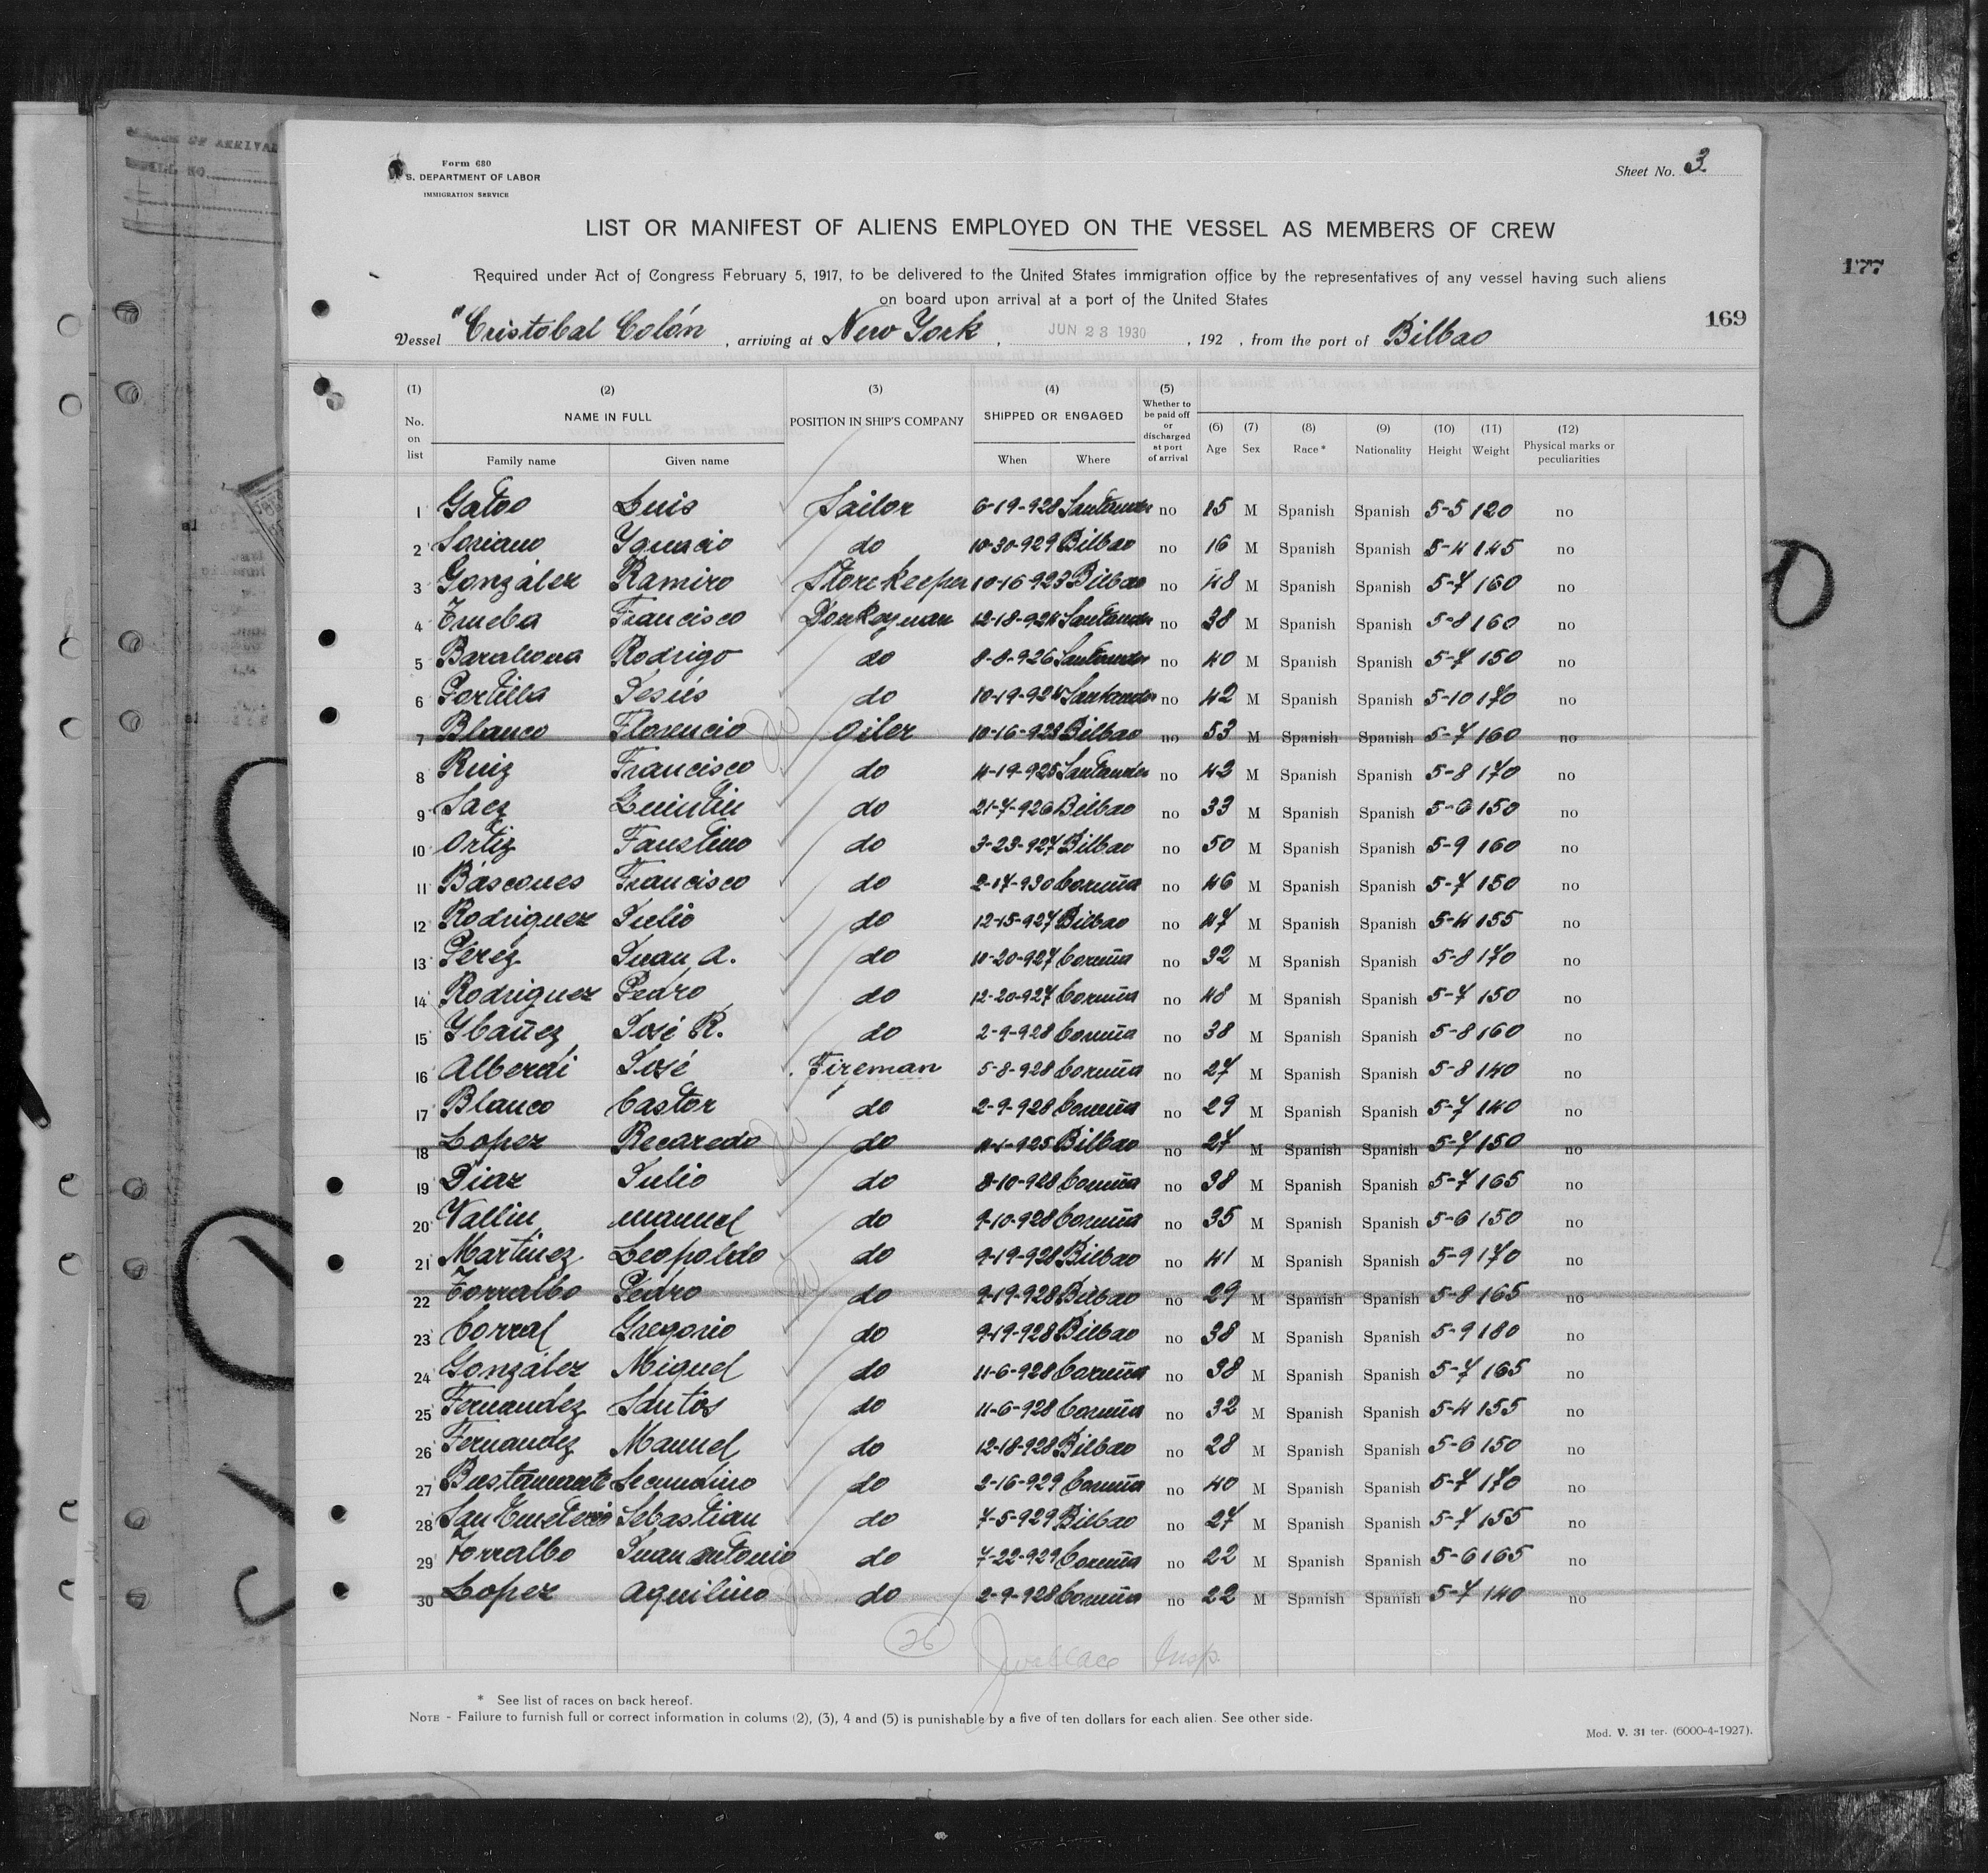 Form 680
S. DEPARTMENT OF LABOR
IMMIGRATION SERVICE
Sheet No. 3
LIST OR MANIFEST OF ALIENS EMPLOYED ON THE VESSEL AS MEMBERS OF CREW
Required under Act of Congress February 5, 1917, to be delivered to the United States immigration office by the representatives of any vessel having such aliens
on board upon arrival at a port of the United States
177
169
Vessel "Cristobal Colón, arriving at New York, JUN 23 1930, 192 , from the port of Bilbao
(1) No. on list (2) NAME IN FULL Family name Given name (3) POSITION IN SHIP'S COMPANY (4) SHIPPED OR ENGAGED When Where (5) Whether to be paid off or discharged at port of arrival (6) Age (7) Sex (8) Race* (9) Nationality (10) Height (11) Weight (12) Physical marks or peculiarities
1 Gatoo Luis Sailor 6-19-928 Santander no 15 M Spanish Spanish 5-5 120 no
2 Soriano Ygnacio do 10-30-929 Bilbao no 16 M Spanish Spanish 5-4 145 no
3 González Ramiro Storekeeper 10-16-923 Bilbao no 48 M Spanish Spanish 5-7 160 no
4 Trueba Francisco Donkeyman 12-18-924 Santander no 38 M Spanish Spanish 5-8 160 no
5 Barahona Rodrigo do 8-8-926 Santander no 40 M Spanish Spanish 5-7 150 no
6 Portilla Jesús do 10-19-925 Santander no 42 M Spanish Spanish 5-10 170 no
7 Blanco Florencio Oiler 10-16-923 Bilbao no 53 M Spanish Spanish 5-7 160 no
8 Ruiz Francisco do 4-19-925 Santander no 43 M Spanish Spanish 5-8 170 no
9 Saez Quintin do 21-7-926 Bilbao no 33 M Spanish Spanish 5-6 150 no
10 Ortiz Faustino do 3-23-927 Bilbao no 50 M Spanish Spanish 5-9 160 no
11 Báscones Francisco do 2-17-930 Coruña no 46 M Spanish Spanish 5-7 150 no
12 Rodriguez Julio do 12-15-927 Bilbao no 47 M Spanish Spanish 5-4 155 no
13 Pérez Juan A. do 11-20-927 Coruña no 32 M Spanish Spanish 5-8 170 no
14 Rodriguez Pedro do 12-20-927 Coruña no 48 M Spanish Spanish 5-7 150 no
15 Ybañez José R. do 2-9-928 Coruña no 38 M Spanish Spanish 5-8 160 no
16 Alberdi José Fireman 5-8-928 Coruña no 27 M Spanish Spanish 5-8 140 no
17 Blanco Castor do 2-9-928 Coruña no 29 M Spanish Spanish 5-7 140 no
18 Lopez Recaredo do 4-1-925 Bilbao no 27 M Spanish Spanish 5-7 150 no
19 Diaz Julio do 8-10-928 Coruña no 38 M Spanish Spanish 5-7 165 no
20 Vallin Manuel do 9-10-928 Coruña no 35 M Spanish Spanish 5-6 150 no
21 Martinez Leopoldo do 9-19-928 Bilbao no 41 M Spanish Spanish 5-9 170 no
22 Torralbo Pedro do 9-19-928 Bilbao no 29 M Spanish Spanish 5-8 165 no
23 Corral Gregorio do 9-19-928 Bilbao no 38 M Spanish Spanish 5-9 180 no
24 González Miguel do 11-6-928 Coruña no 38 M Spanish Spanish 5-7 165 no
25 Fernandez Santos do 11-6-928 Coruña no 32 M Spanish Spanish 5-4 155 no
26 Fernandez Manuel do 12-18-928 Bilbao no 28 M Spanish Spanish 5-6 150 no
27 Bustamante Secundino do 2-16-929 Coruña no 40 M Spanish Spanish 5-7 170 no
28 San Emeterio Sebastian do 7-5-929 Bilbao no 27 M Spanish Spanish 5-7 155 no
29 Torralbo Juan Antonio do 7-22-929 Coruña no 22 M Spanish Spanish 5-6 165 no
30 Lopez Aquilino do 2-9-928 Coruña no 22 M Spanish Spanish 5-7 140 no
26 J Wallace Insp.
* See list of races on back hereof.
NOTE - Failure to furnish full or correct information in colums (2), (3), 4 and (5) is punishable by a five of ten dollars for each alien. See other side.
Mod. V. 31 ter. (6000-4-1927).